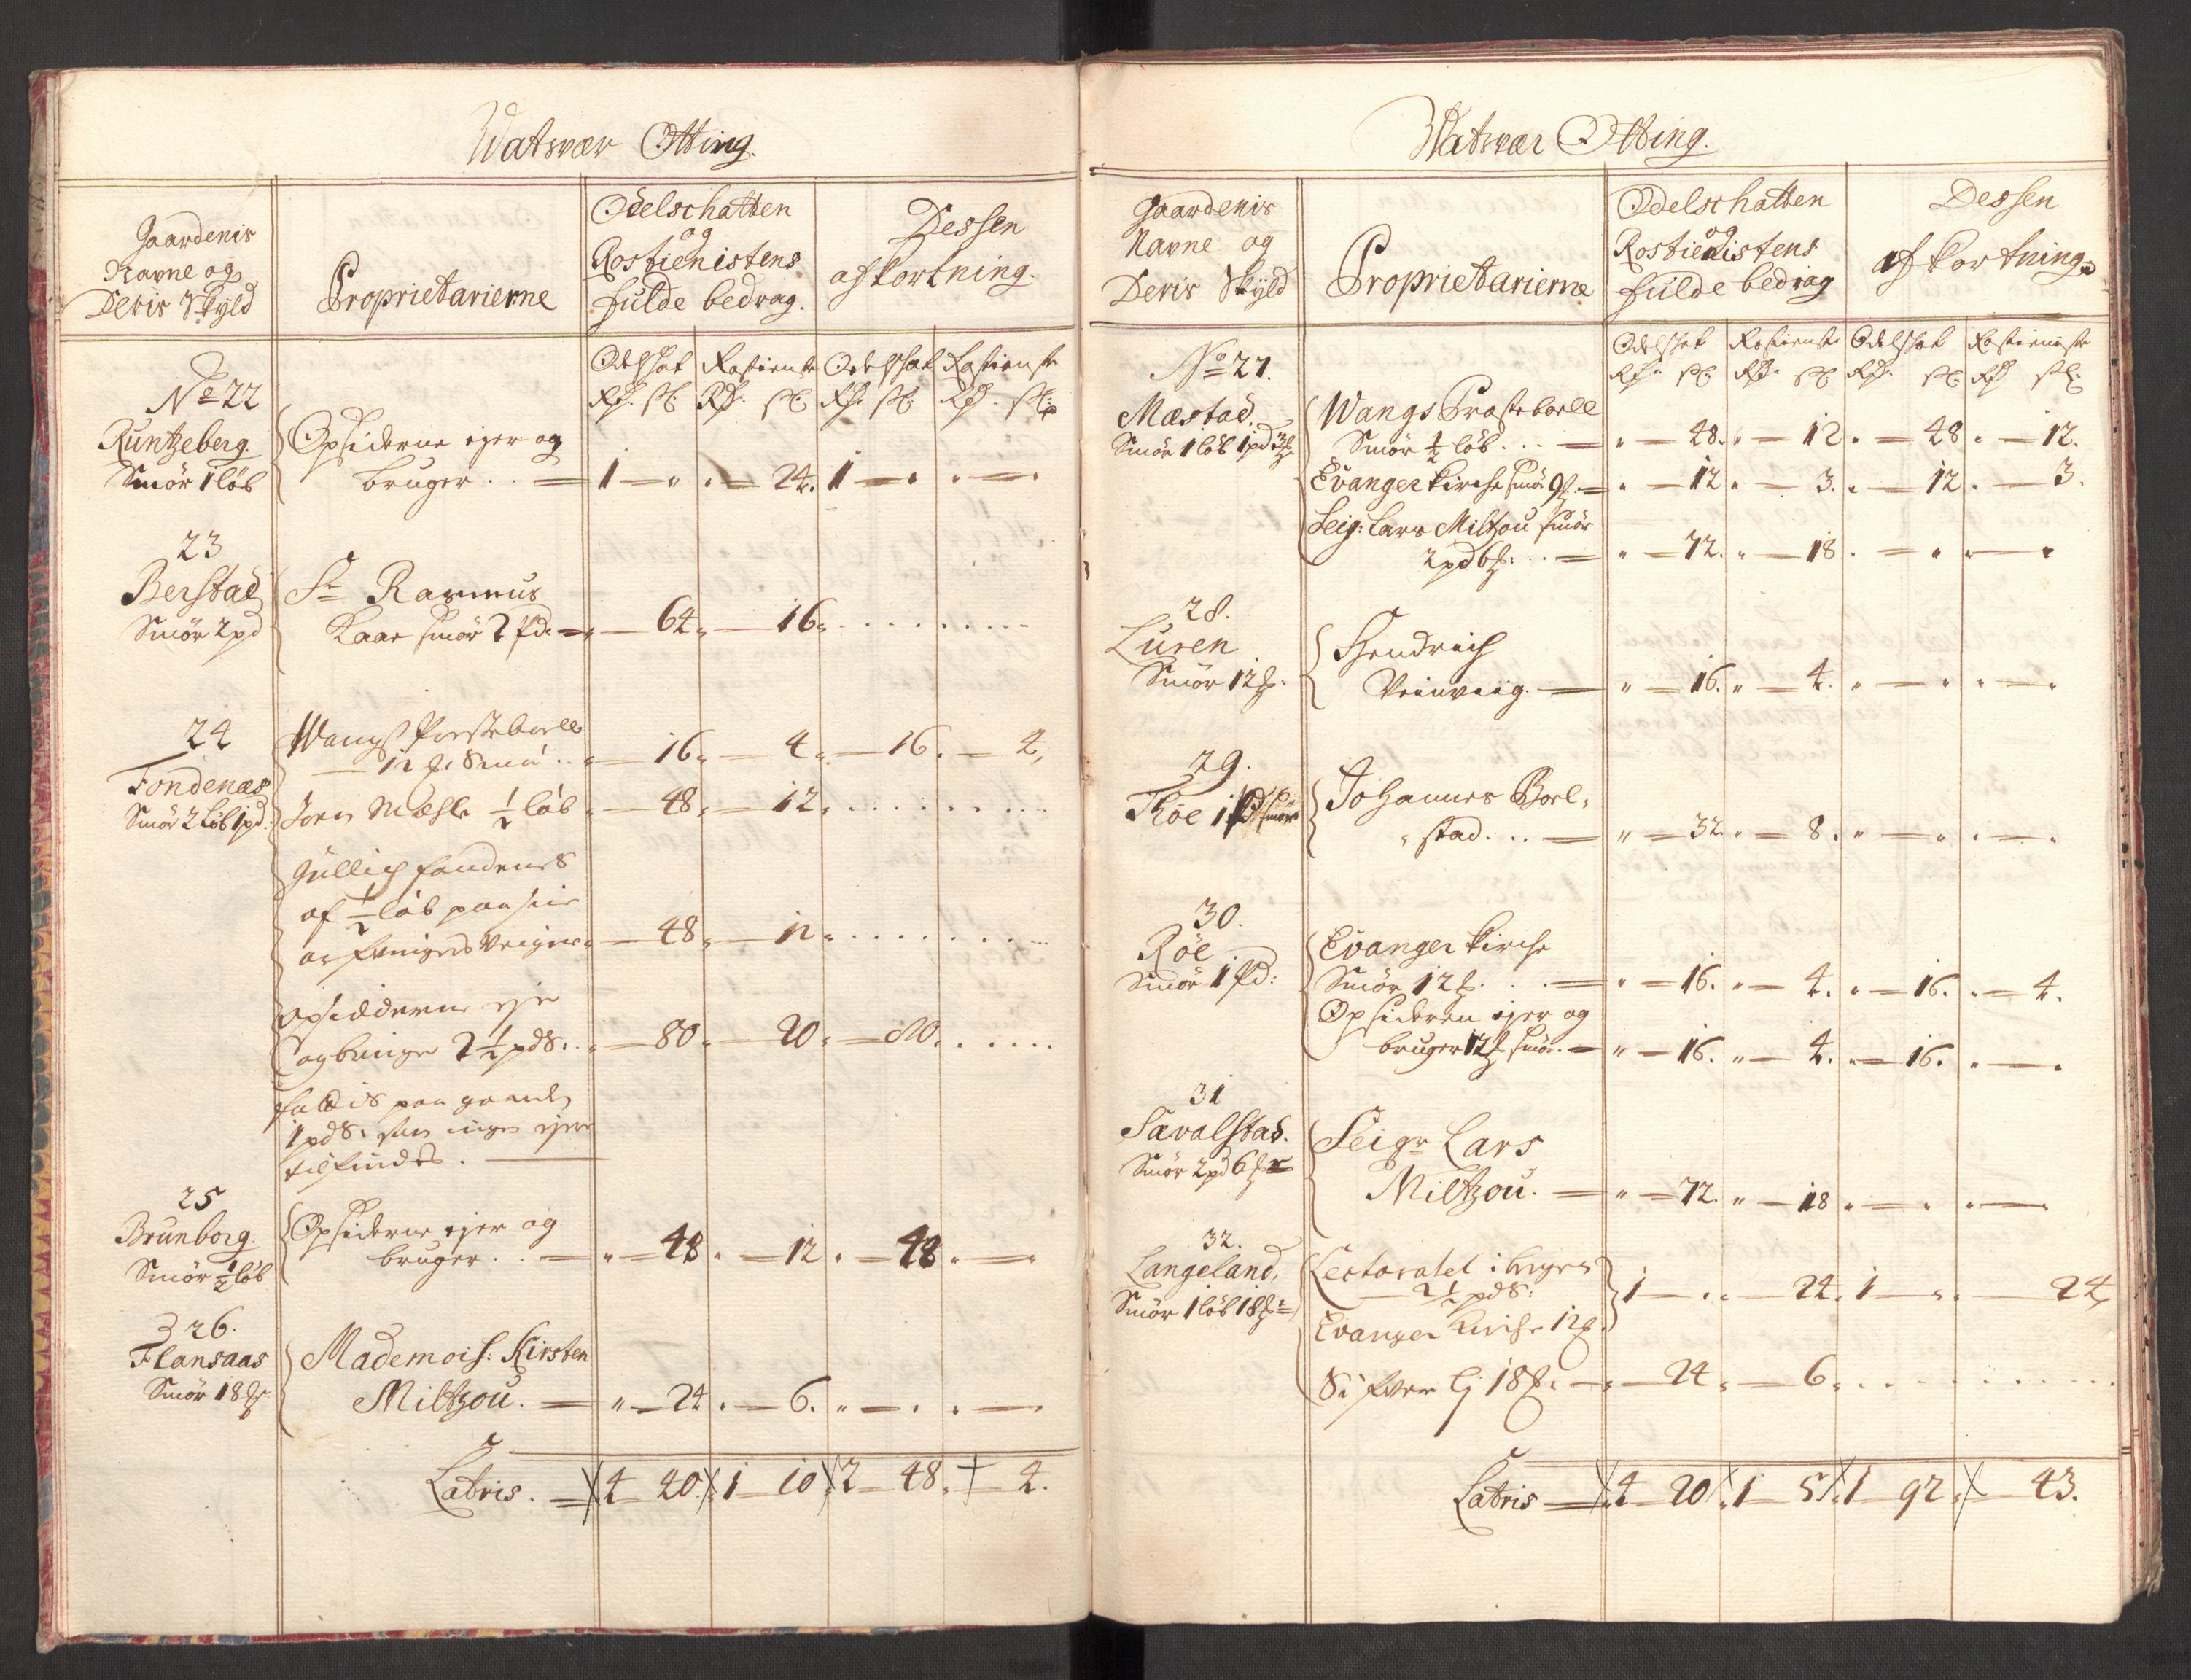 Watsvær Otting.
Gaardenis
Navne og
Deris Skyld
Proprietarierne
Odelschatten
og
Rostienistens
fulde bedrag.
Dessen
afkortning.
Odelschat Rostienste Odelschat Rostienste
Rdr. sk. Rdr. sk. Rdr. sk. Rdr. sk.
No 22
Runtzeberg.
Smör 1 löb
Opsiderne ejer og
bruger . . — 1 — " " — 24. 1 — " " — "
23
Berstad
Smör 2 pd
Sr Rasmus
Kaas smör 2 pd. — " — 64 " — 16 " . . . . . .
24
Fondenæs
Smör 2 löb 1 pd.
Wangs Presteboelle
— 12 Smör . . " — 16 " — 4 " — 16. — 4,
Joen Mæhle ½ löb " — 48 " — 12 . . . . . . .
Gullich fondenes
af ½ löb paa sin
— 48 " — 12 " . . . . . .
opsidderne ejer
og bruger 2½ pd S: . " — 80 " — 20 " — 80. . . . . .
paa gaarden
1 pd S. som ingen ejere
tilfindes. —
25
Brunborg.
Smör ½ löb
Opsiderne ejer og
bruger . . — " — 48 " — 12 " — 48 " — "
26.
Flansaas
Smör 18
Mademois: Kirsten
Miltzou. — " — 24 " — 6. " — " " — "
Latris. — 4 — 40. 1 — 10 2 — 48. — 4.
Watsvær Otting.
Gaardenis
Navne og
Deris Skyld
Proprietarierne
Odelschatten
og
Rostienistens
fulde bedrag
Dessen
afkortning.
Odelschat Rostienste Odelschat Rostieniste
Rdr. sk. Rdr. sk. Rdr. sk. Rdr. sk.
No 27.
Mæstad.
Smör 1 löb 1 pd 3
Wangs Præsteboell
Smör ½ löb . . . — " — 48. " — 12 " — 48 " — 12.
Evanger Kirche smör 9 — " — 12 " — 3. " — 12 " — 3.
Seig: Lars Miltzou smör
2 pd 6 . . — " — 72. " — 18 . — " " — "
28.
Luren
Smör 12
Hendrich
Weinwiig. — " — 16. " — 4. " — " " — "
29.
Röe 1 pd smör
Johannes Borl-
stad. . . — " — 32 " — 8. " — " " — "
30.
Röe
Smör 1 pd:
Evanger Kirche
Smör 12 . . . — " — 16. " — 4. " — 16. " — 4.
Opsideren ejer og
bruger 12 smör. — " — 16. " — 4. " — 16. " — "
31
Savalstad.
Smör 2 pd 6
Seigr Lars
Miltzou. — " — 72. " — 18 " — " " — "
32.
Langeland,
Smör 1 löb 18
Lectoratet i bergen
— 2½ pd S: 1 — " " — 24. 1 — " " — 24,
Evanger Kirche 12
18 — " — 24 " — 6. . . . . . .
Latris — 4 — 20 1 — 5 1 — 92 — 43.